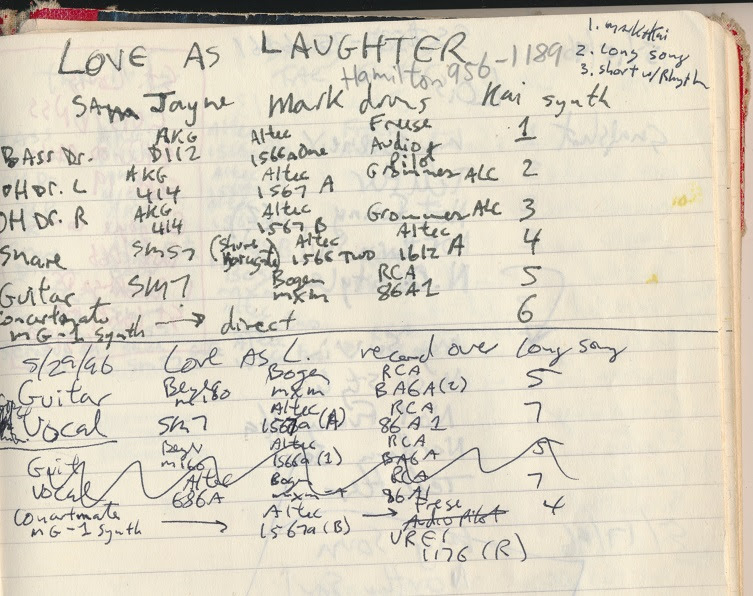 LOVE AS LAUGHTER
Hamilton 956-1189
1. mark+Kai
2. Long song
3. short w/Rhythm
Sam Jayne Mark drums Kai synth
Bass Dr. AKG D112 Altec 1566a One Freese Audio Pilot 1
OH Dr. L AKG 414 Altec 1567 A Grommes ALC 2
OH Dr. R AKG 414 Altec 1567 B Grommes ALC 3
Snare SM57 (Shure) Altec 1566 TWO Altec 1612 A 4
Guitar SM7 Bogen mxm RCA 86A1 5
Concertmate MG-1 Synth → direct 6
5/29/96 Love As L. record over long song
Guitar Beyer m160 Bogen mxm RCA BA6A(2) 5
Vocal SM7 Altec 1567a (A) RCA 86A1 7
Guit Beyer m160 Altec 1566a(1) RCA BA6A 5
Vocal Altec 686A Bogen mxm A RCA 86A1 7
Concertmate MG-1 Synth → Altec 1567a (B) → Frese Audio Pilot 4
UREI 1176 (R)